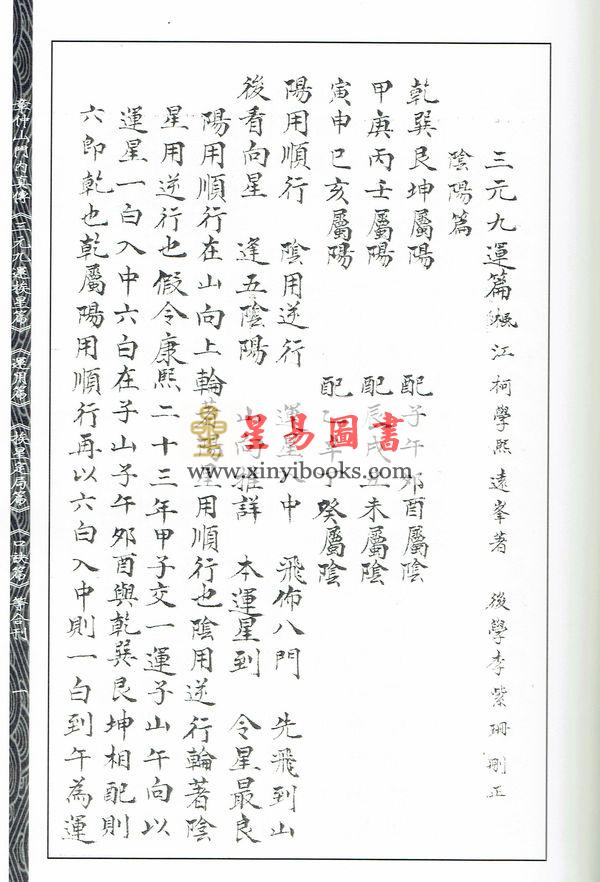 三元九運篇 岷江柯學熙遠峯著 後學李紫珊刪正
陰陽篇
乾巽艮坤屬陽 配子午夘酉屬陰
甲庚丙壬屬陽 配辰戌丑未屬陰
寅申巳亥屬陽 配乙辛丁癸屬陰
陽用順行 陰用逆行 運星入中 飛佈八門 先飛到山
後看向星 逢五陰陽 山向推詳 本運星到 令星最良
陽用順行在山向上輪著陽星用順行也陰用逆行輪著陰
星用逆行也假令康熙二十三年甲子交一運子山午向以
運星一白入中六白在子山子午夘酉與乾巽艮坤相配則
六即乾也乾屬陽用順行再以六白入中則一白到午為運
章仲山門內真傳《三元九運挨星篇》《運用篇》《挨星定局篇》《口訣篇》等合刊 一
星易圖書
www.xinyibooks.com